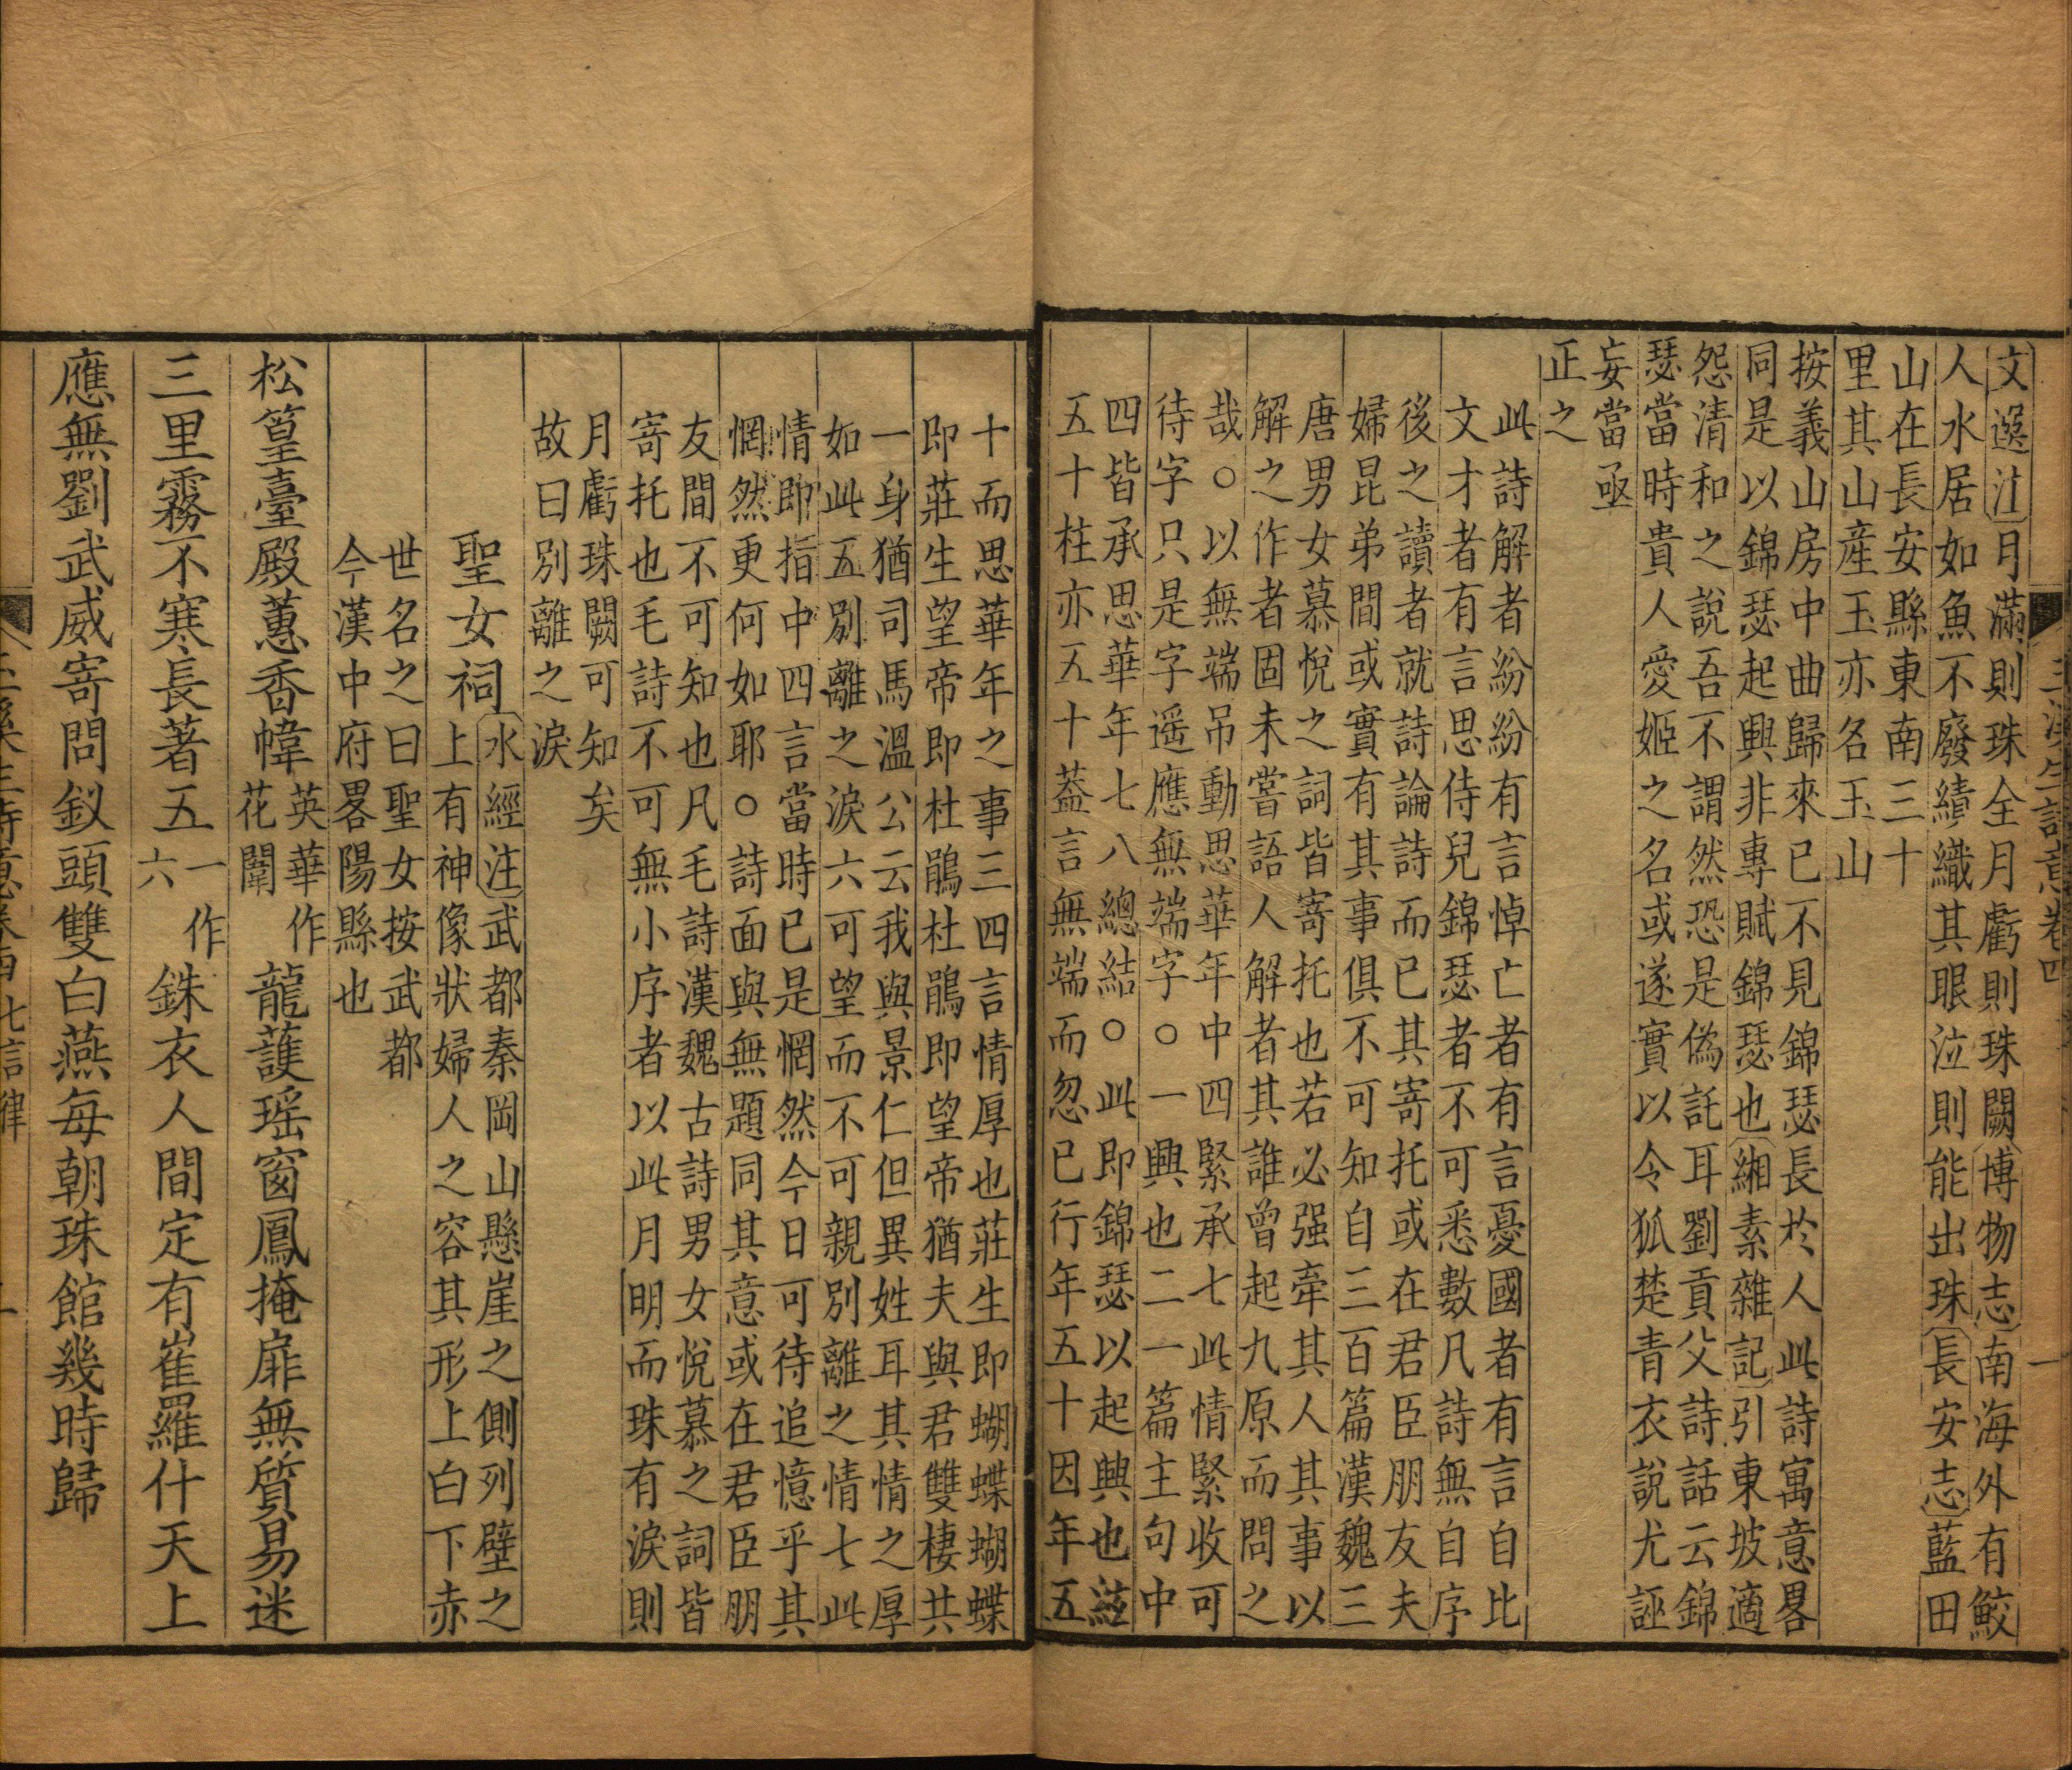 文選注月滿則珠全月虧則珠闕博物志南海外有鮫
人水居如魚不廢績織其眼泣則能出珠長安志藍田
山在長安縣東南三十
里其山産玉亦名玉山
按義山房中曲歸來已不見錦瑟長於人此詩寓意畧
同是以錦瑟起興非專賦錦瑟也緗素雜記引東坡適
怨清和之說吾不謂然恐是偽託耳劉貢父詩話云錦
瑟當時貴人愛姬之名或遂實以令狐楚青衣說尤誣
妄當亟
正之
此詩解者紛紛有言悼亡者有言憂國者有言自比
文才者有言思侍兒錦瑟者不可悉數凡詩無自序
後之讀者就詩論詩而已其寄托或在君臣朋友夫
婦昆弟間或實有其事俱不可知自三百篇漢魏三
唐男女慕悅之詞皆寄托也若必强牽其人其事以
解之作者固未嘗語人解者其誰曾起九原而問之
哉○以無端吊動思華年中四緊承七此情緊收可
待字只是字遥應無端字○一興也二一篇主句中
四皆承思華年七八總結○此即錦瑟以起興也絃
五十柱亦五十葢言無端而忽已行年五十因年五
十而思華年之事三四言情厚也莊生即蝴蝶蝴蝶
即莊生望帝即杜鵑杜鵑即望帝猶夫與君雙棲共
一身猶司馬溫公云我與景仁但異姓耳其情之厚
如此五別離之淚六可望而不可親別離之情七此
情即指中四言當時已是惘然今日可待追憶乎其
惘然更何如耶○詩面與無題同其意或在君臣朋
友間不可知也凡毛詩漢魏古詩男女悅慕之詞皆
寄托也毛詩不可無小序者以此月明而珠有淚則
月虧珠闕可知矣
故曰別離之淚
聖女祠
水經注武都秦岡山懸崖之側列壁之
上有神像狀婦人之容其形上白下赤
世名之曰聖女按武都
今漢中府畧陽縣也
松篁臺殿蕙香幃英華作花闈龍護瑶窗鳳掩扉無質易迷
三里霧不寒長著五一作六銖衣人間定有崔羅什天上
應無劉武威寄問釵頭雙白燕每朝珠館幾時歸